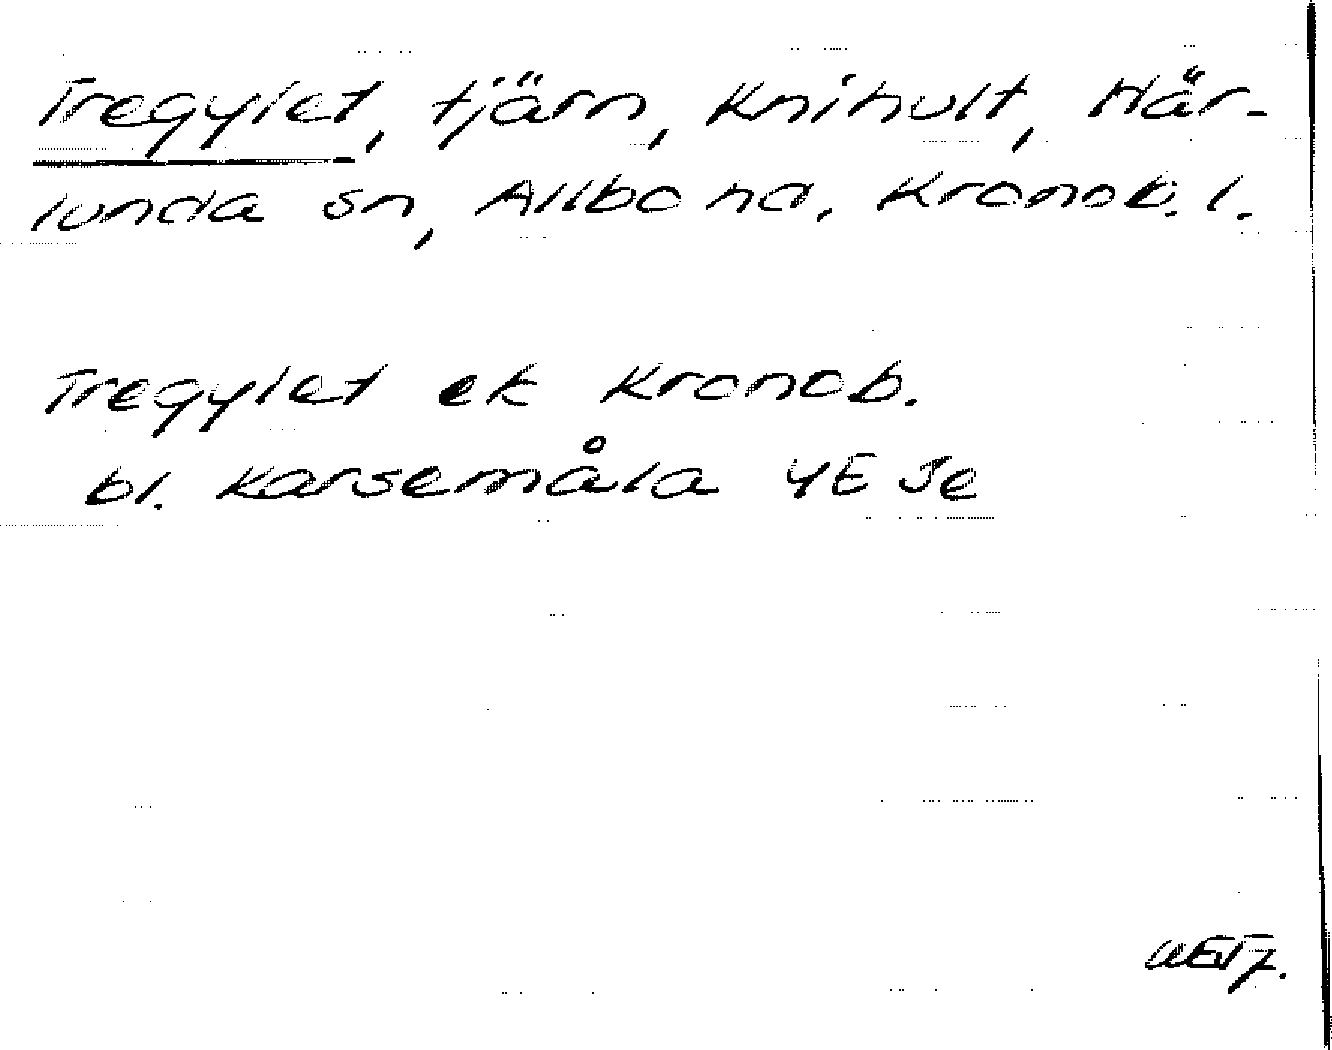 Tregylet, tjärn, Knihult, Här-
lunda sn, Allbo hd, Kronob. l.
Tregylet ek Kronob.
bl. Karsemåla 4E Je